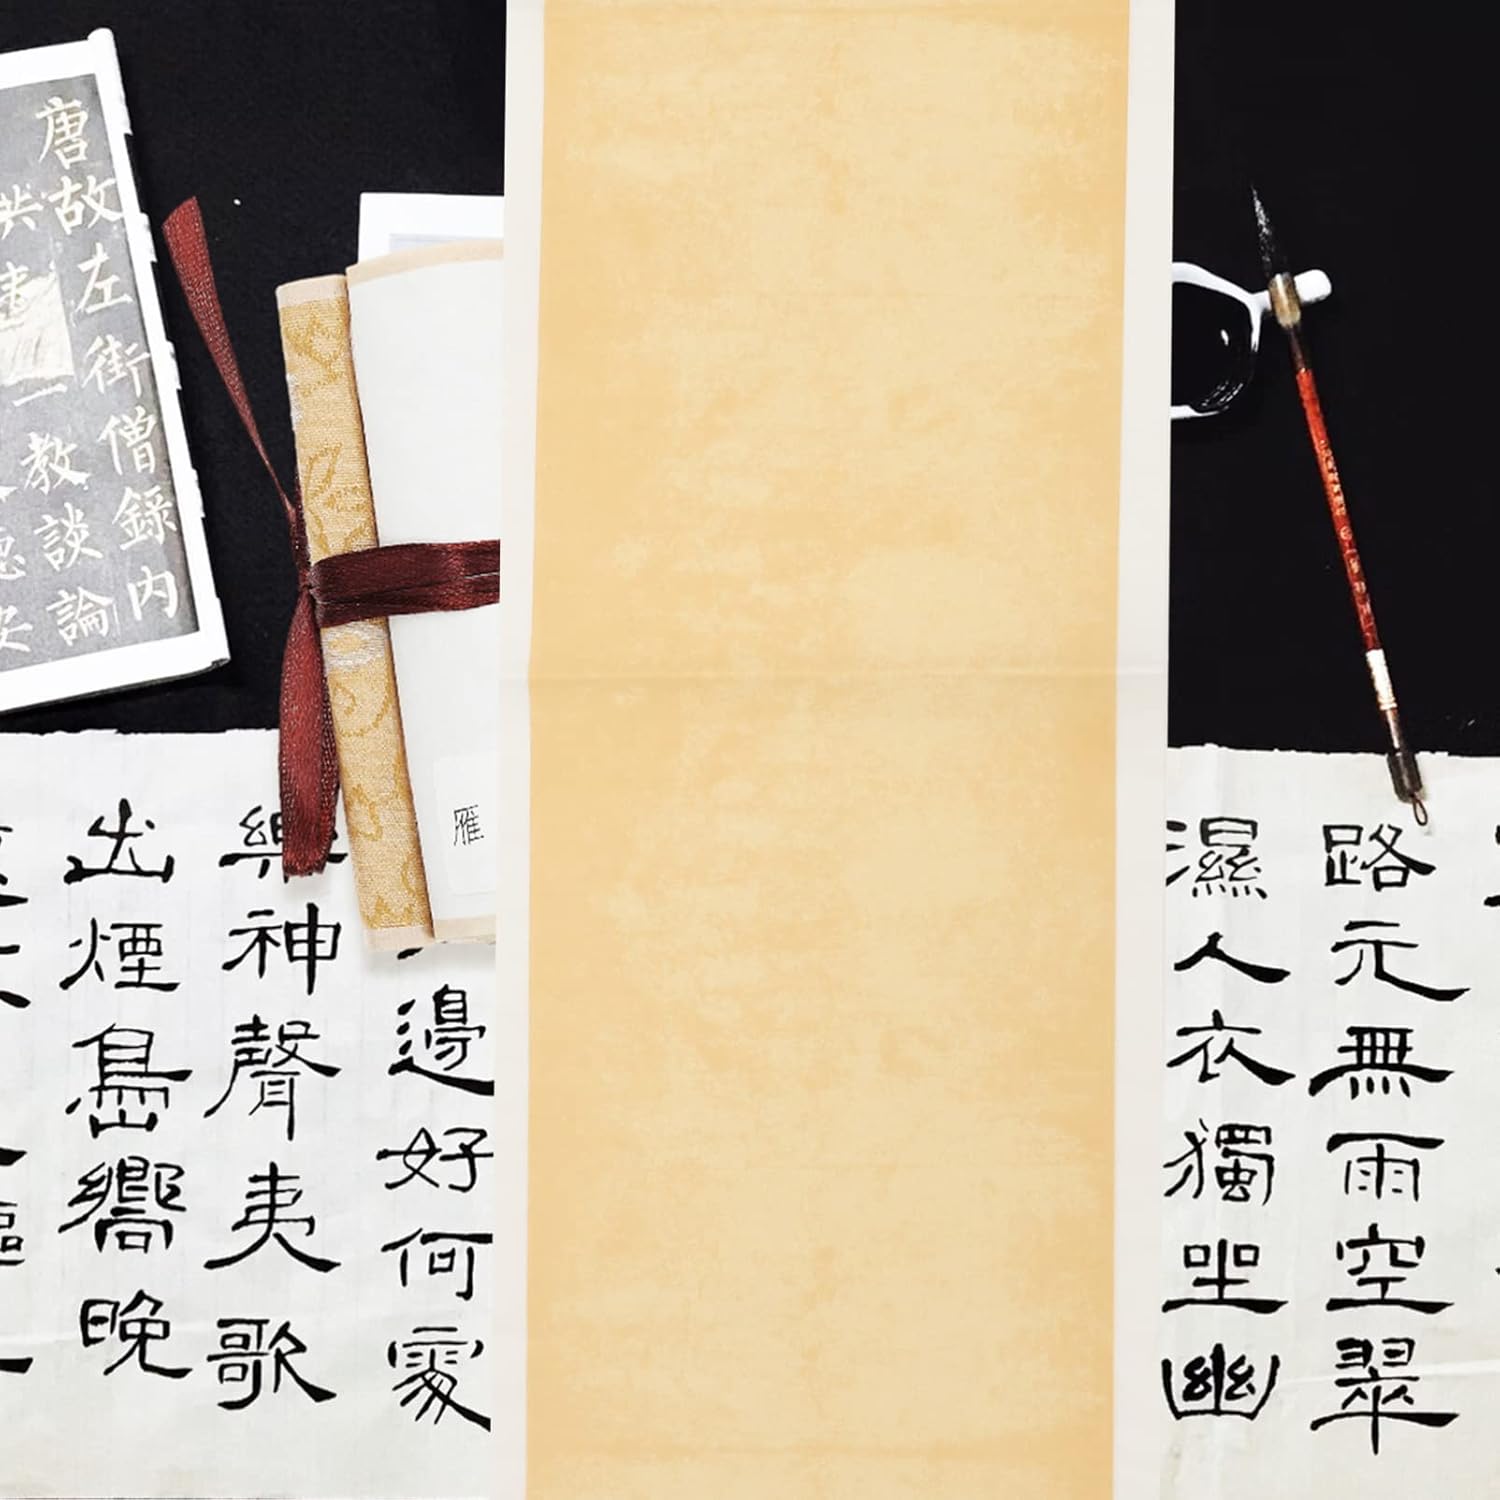 唐故左街僧錄內
教談論
雁
路元無雨空翠
濕人衣獨坐幽
邊好何處
神聲夷歌
出煙島嚮晚